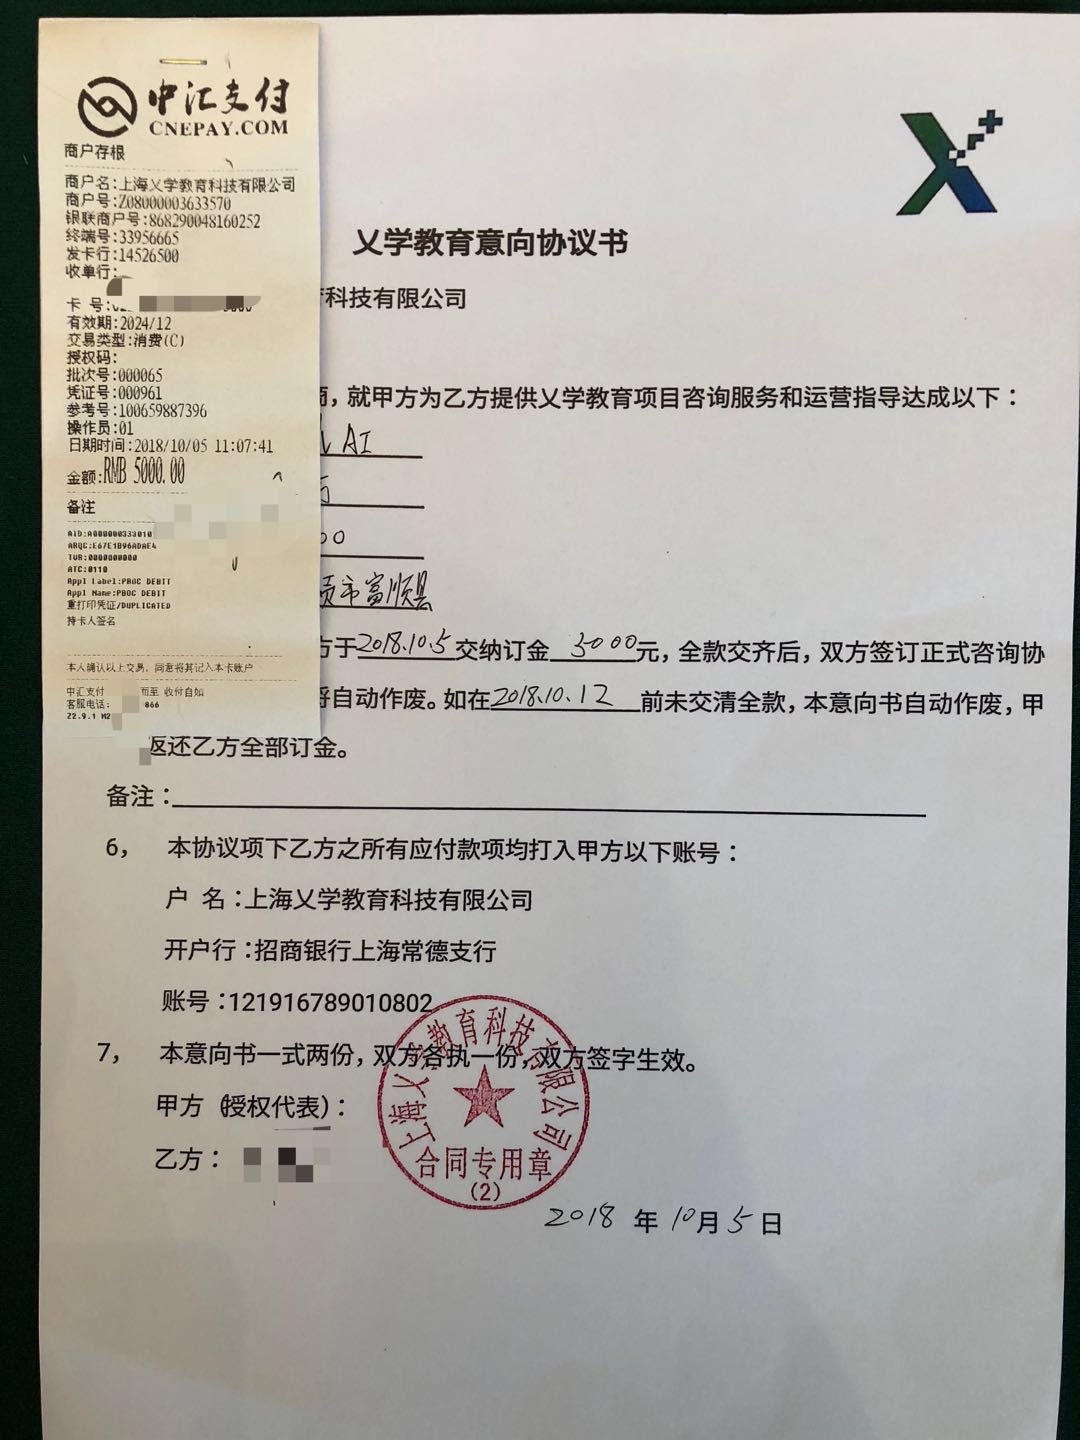 中汇支付
CNEPAY.COM
商户存根
商户名:上海乂学教育科技有限公司
商户号:Z08000003633570
银联商户号:868290048160252
终端号:33956665
发卡行:14526500
收单行:
卡 号:
有效期:2024/12
交易类型:消费(C)
授权码:
批次号:000065
凭证号:000961
参考号:100659887396
操作员:01
日期时间:2018/10/05 11:07:41
金额:RMB 5000.00
备注
AID:A000000333010
ARQC:E67E1B96ADAE4
TVR:0000000000
ATC:0110
Appl Label:PBOC DEBIT
Appl Name:PBOC DEBIT
重打印凭证/DUPLICATED
持卡人签名
本人确认以上交易, 同意将其记入本卡账户
中汇支付 而至 收付自如
客服电话: 866
Z2.9.1 M2
X+
乂学教育意向协议书
科技有限公司
,就甲方为乙方提供乂学教育项目咨询服务和运营指导达成以下:
AI
万
00
贡市富顺县
方于2018.10.5交纳订金 5000元,全款交齐后,双方签订正式咨询协
将自动作废。如在2018.10.12前未交清全款,本意向书自动作废,甲
返还乙方全部订金。
备注:
6, 本协议项下乙方之所有应付款项均打入甲方以下账号:
户 名:上海乂学教育科技有限公司
开户行:招商银行上海常德支行
账号:121916789010802
7, 本意向书一式两份,双方各执一份,双方签字生效。
甲方(授权代表):
乙方:
上海乂学教育科技有限公司
合同专用章
(2)
2018 年 10月 5 日